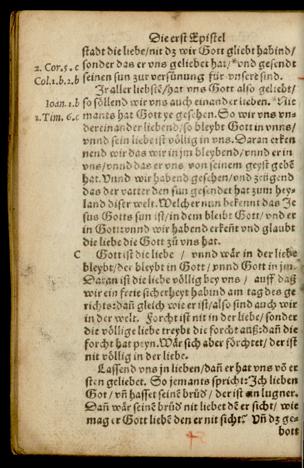 Die erst Epistel
stadt die liebe/nit dz wir Gott gliebt habind/
2. Cor.5. c sonder das er vns geliebet hat/ vnd gesendt
Col.1.b.2.b seinen sun zur versünung für vnsere sünd.
Ir aller liebstē/hat vns Gott also geliebt/
Ioan.1.b so söllend wir vns auch einander lieben. Nie
1.Tim.6.c mants hat Gott ye gesehen. So wir vns vn=
dereinander liebend/so bleybt Gott in vnns/
vnnd sein liebe ist völlig in vns. Daran erken
nend wir das wir in jm bleybend/vnnd er in
vns/vnnd das er vns von seinem geyst gebē
hat. Vnnd wir habend gesehen/vnd zeügend
das der vatter den sun gesendet hat zum hey=
land diser welt. Welcher nun bekennt das Je
sus Gotts sun ist/in dem bleibt Gott/vnd er
in Gott: vnnd wir habend erkeñt vnd glaubt
die liebe die Gott zů vns hat.
C Gott ist die liebe / vnnd wär in der liebe
bleybt/der bleybt in Gott/vnnd Gott in jm.
Daran ist die liebe völlig bey vns / auff daß
wir ein freie sicherheyt habind am tag des ge
richts: dañ gleich wie er ist/also sind auch wir
in der welt. Forcht ist nit in der liebe/sonder
die völlige liebe treybt die forcht auß: dañ die
forcht hat peyn. Wär sich aber förchtet/der ist
nit völlig in der liebe.
Lassend vns jn lieben/dañ er hat vns võ er
sten geliebet. So jemants spricht: Jch lieben
Got/ vñ hasset seinē brůd/ der ist ein lugner.
Dañ wär seinē brůd nit liebet dē er sicht/ wie
mag er Gott liebē den er nit sicht? Vñ dz ge=
bott